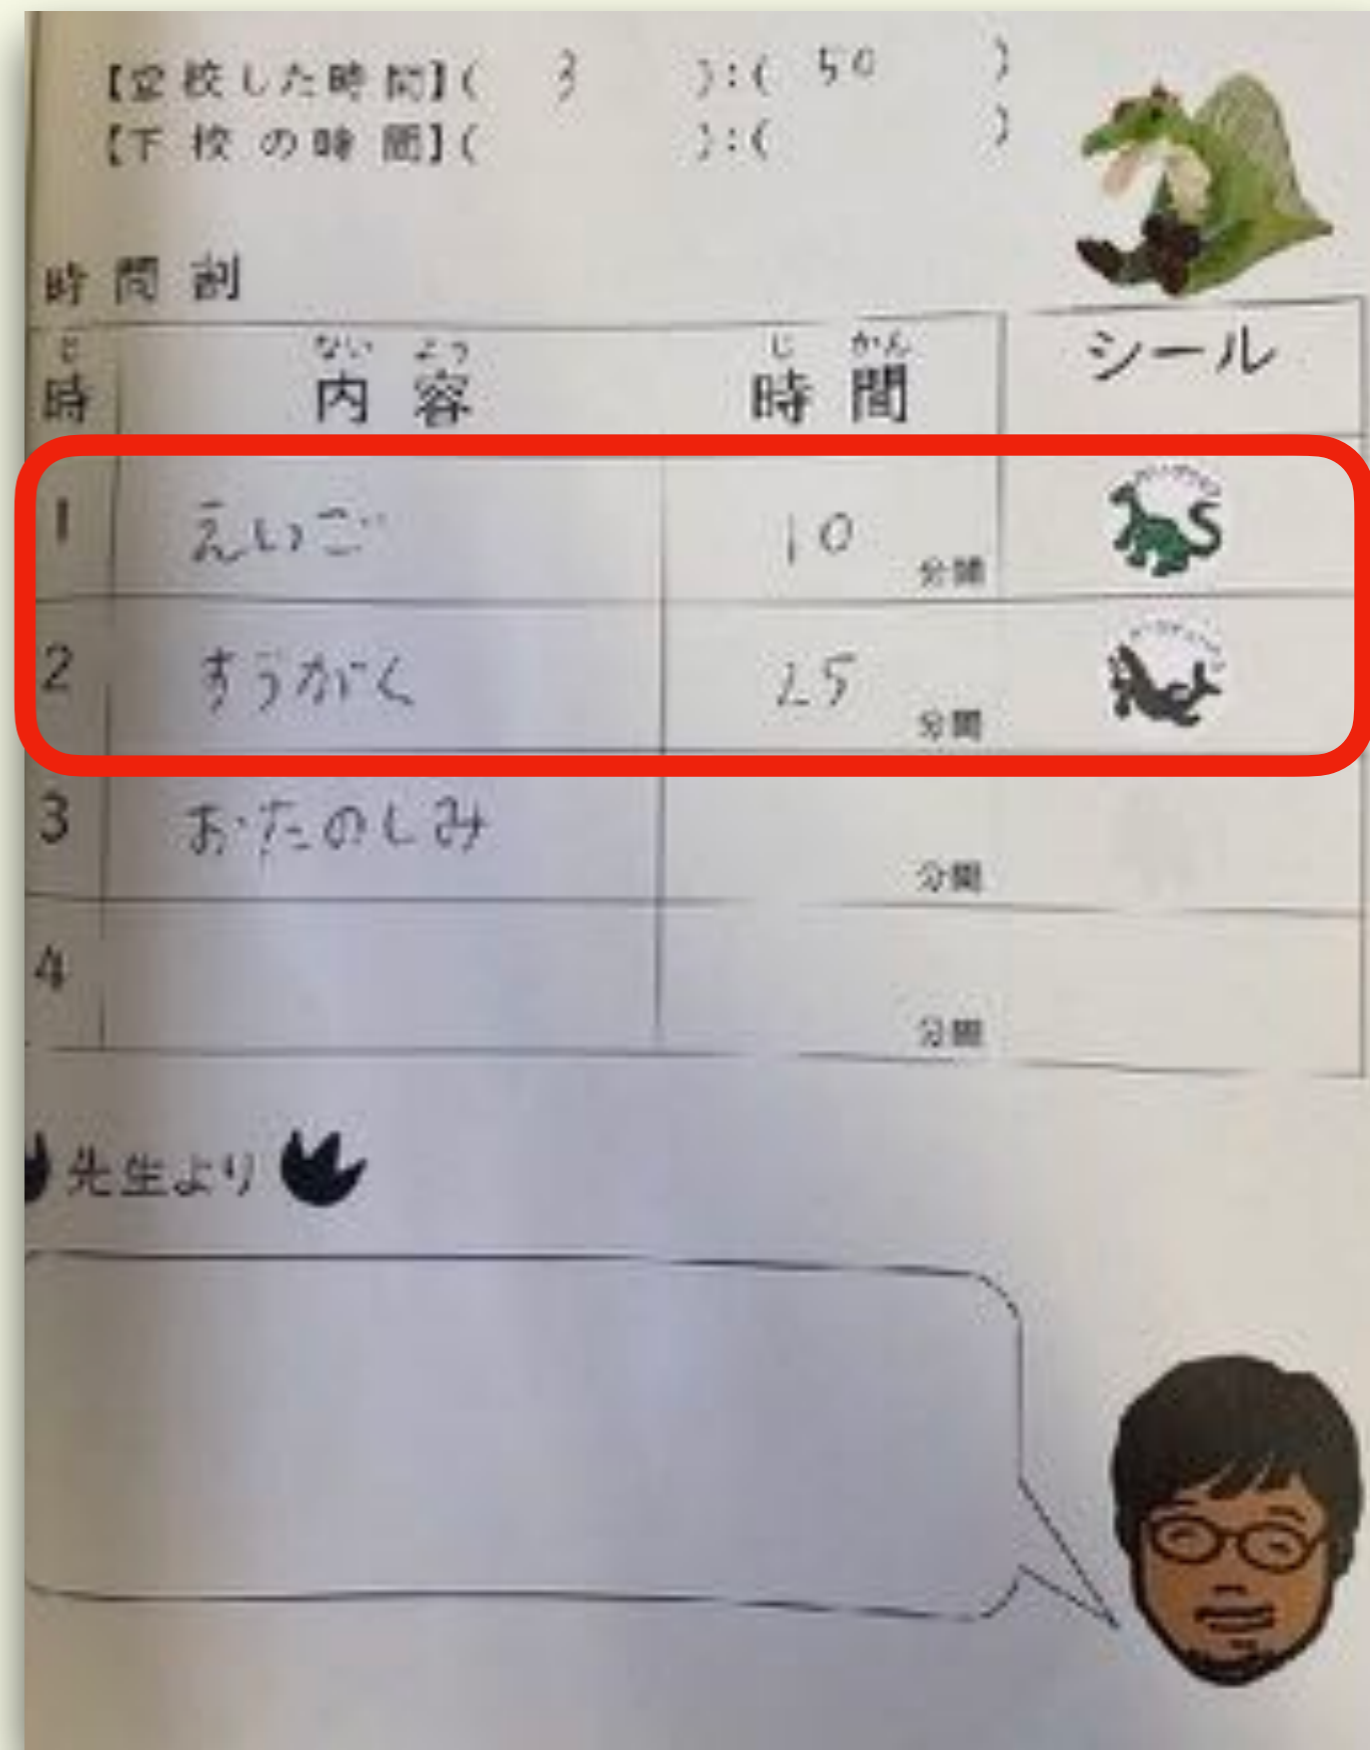 【登校した時間】( 3 ):( 50 )
【下校の時間】( ):( )
時間割
じ ないよう じかん
時 内容 時間 シール
1 えいご 10 分間
2 すうがく 25 分間
3 おたのしみ 分間
4 分間
先生より